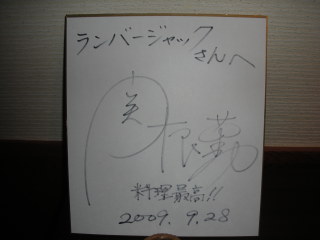 ランバージャック
さんへ
関根勤
料理最高!!
2009.9.28